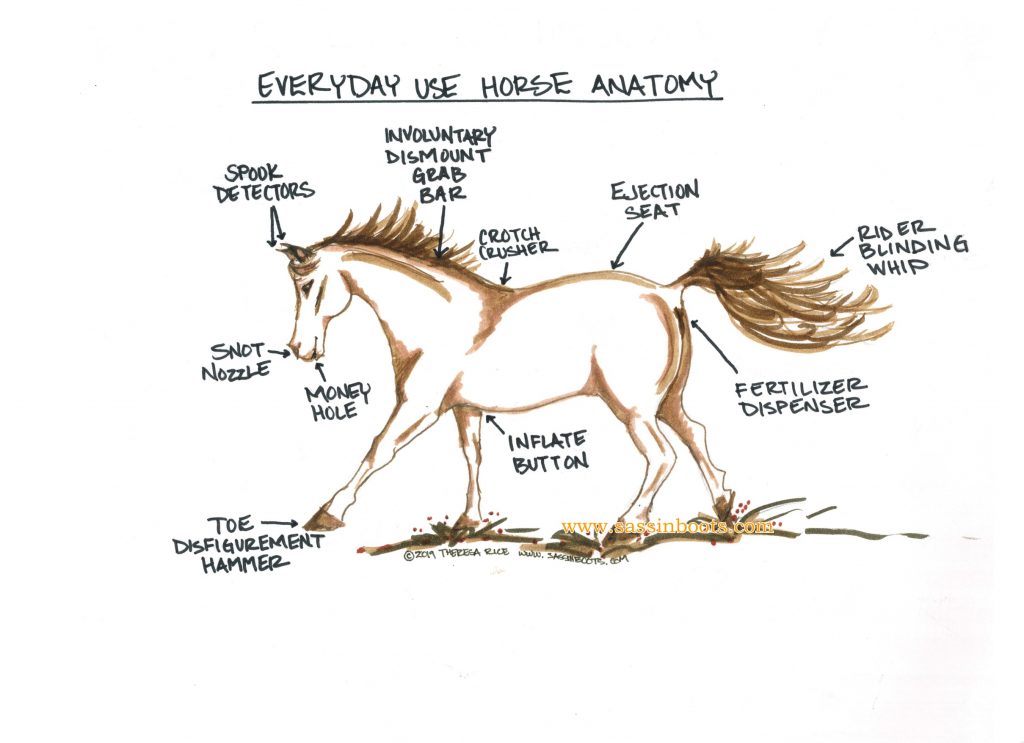 EVERYDAY USE HORSE ANATOMY
INVOLUNTARY
DISMOUNT
GRAB
BAR
SPOOK
DETECTORS
EJECTION
SEAT
CROTCH
CRUSHER
RIDER
BLINDING
WHIP
SNOT
NOZZLE
MONEY
HOLE
FERTILIZER
DISPENSER
INFLATE
BUTTON
TOE
DISFIGUREMENT
HAMMER
www.sassinboots.com
©2019 THERESA RICE WWW.SASSINBOOTS.COM